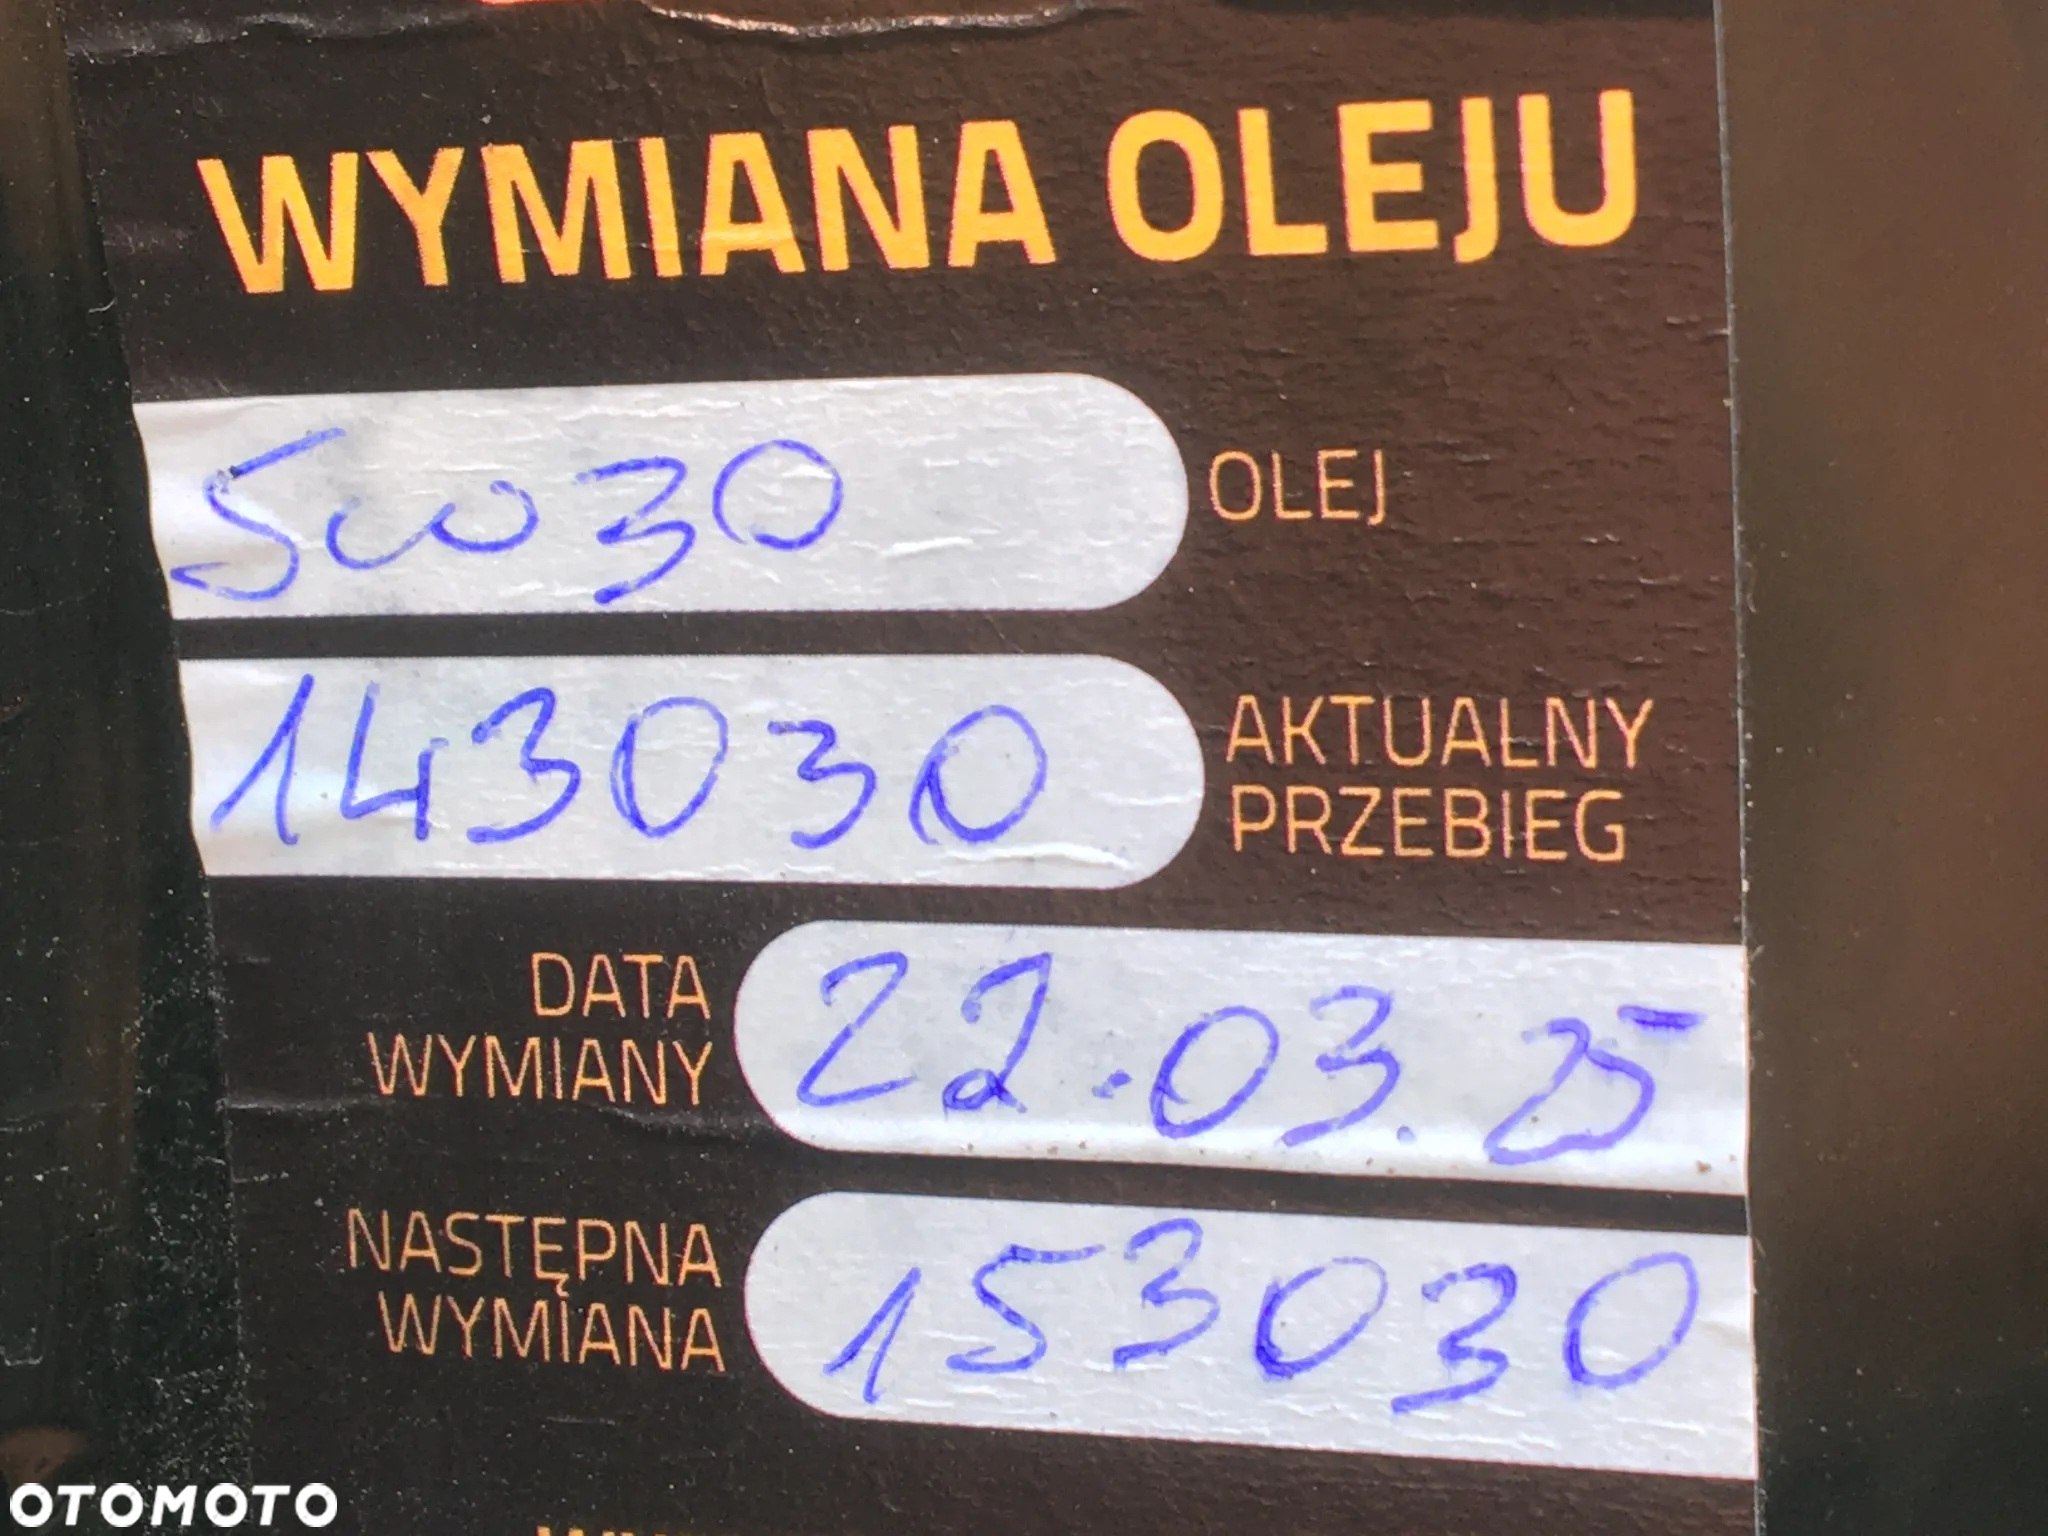 WYMIANA OLEJU
5w30 OLEJ
143030 AKTUALNY
PRZEBIEG
DATA
WYMIANY 22.03.25
NASTĘPNA
WYMIANA 153030
OTOMOTO